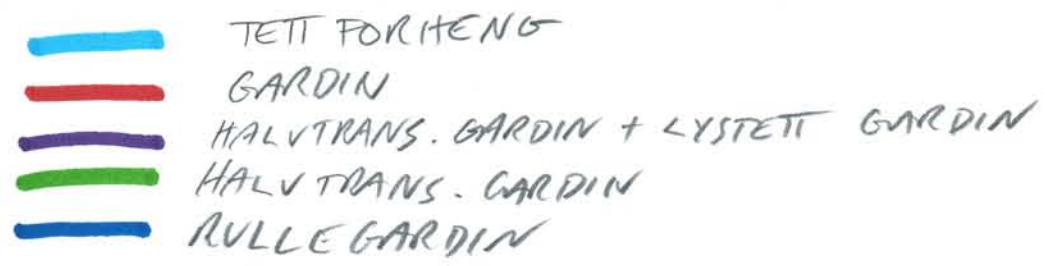 TETT FORHENG
GARDIN
HALVTRANS. GARDIN + LYSTETT GARDIN
HALVTRANS. GARDIN
RULLEGARDIN